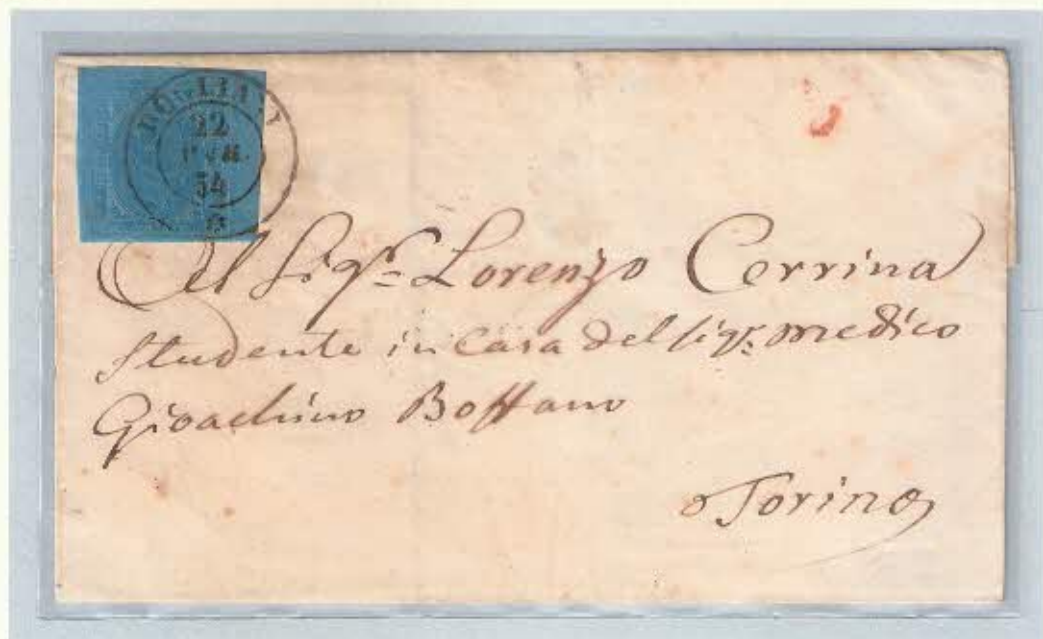 DOGLIANI
22
54
Al Sigr. Lorenzo Cerrina
Studente in Casa del Sigr. medico
Gioachino Boffano
Torino